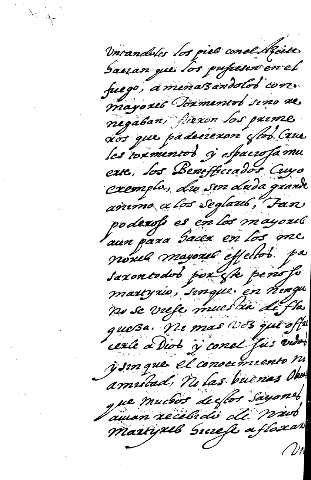 Untandoles los pies con el Azeite
hazian que los pusiesen en el
fuego, amenazandolos con
mayores tormentos sino re
negaban; fueron los prime
ros que padecieron estos crue
les tormentos y espaciosa mu
erte, los Beneficiados cuyo
exemplo, dio sin duda grande
animo a los seglares, Tan
poderoso es en los mayores
aun para hacer en los me
nores mayores effectos. pa
saron todos por este penoso
martyrio, sin que en ningu
no se viese muestra de fla
queza. Ni mas voz que offre
cerle a Dios y con el sus vidas
y sin que el conocimiento ni
amistad, Ni las buenas Obras
que muchos de estos sayones
avian recebido de nros
Martyres hiciese afloxar